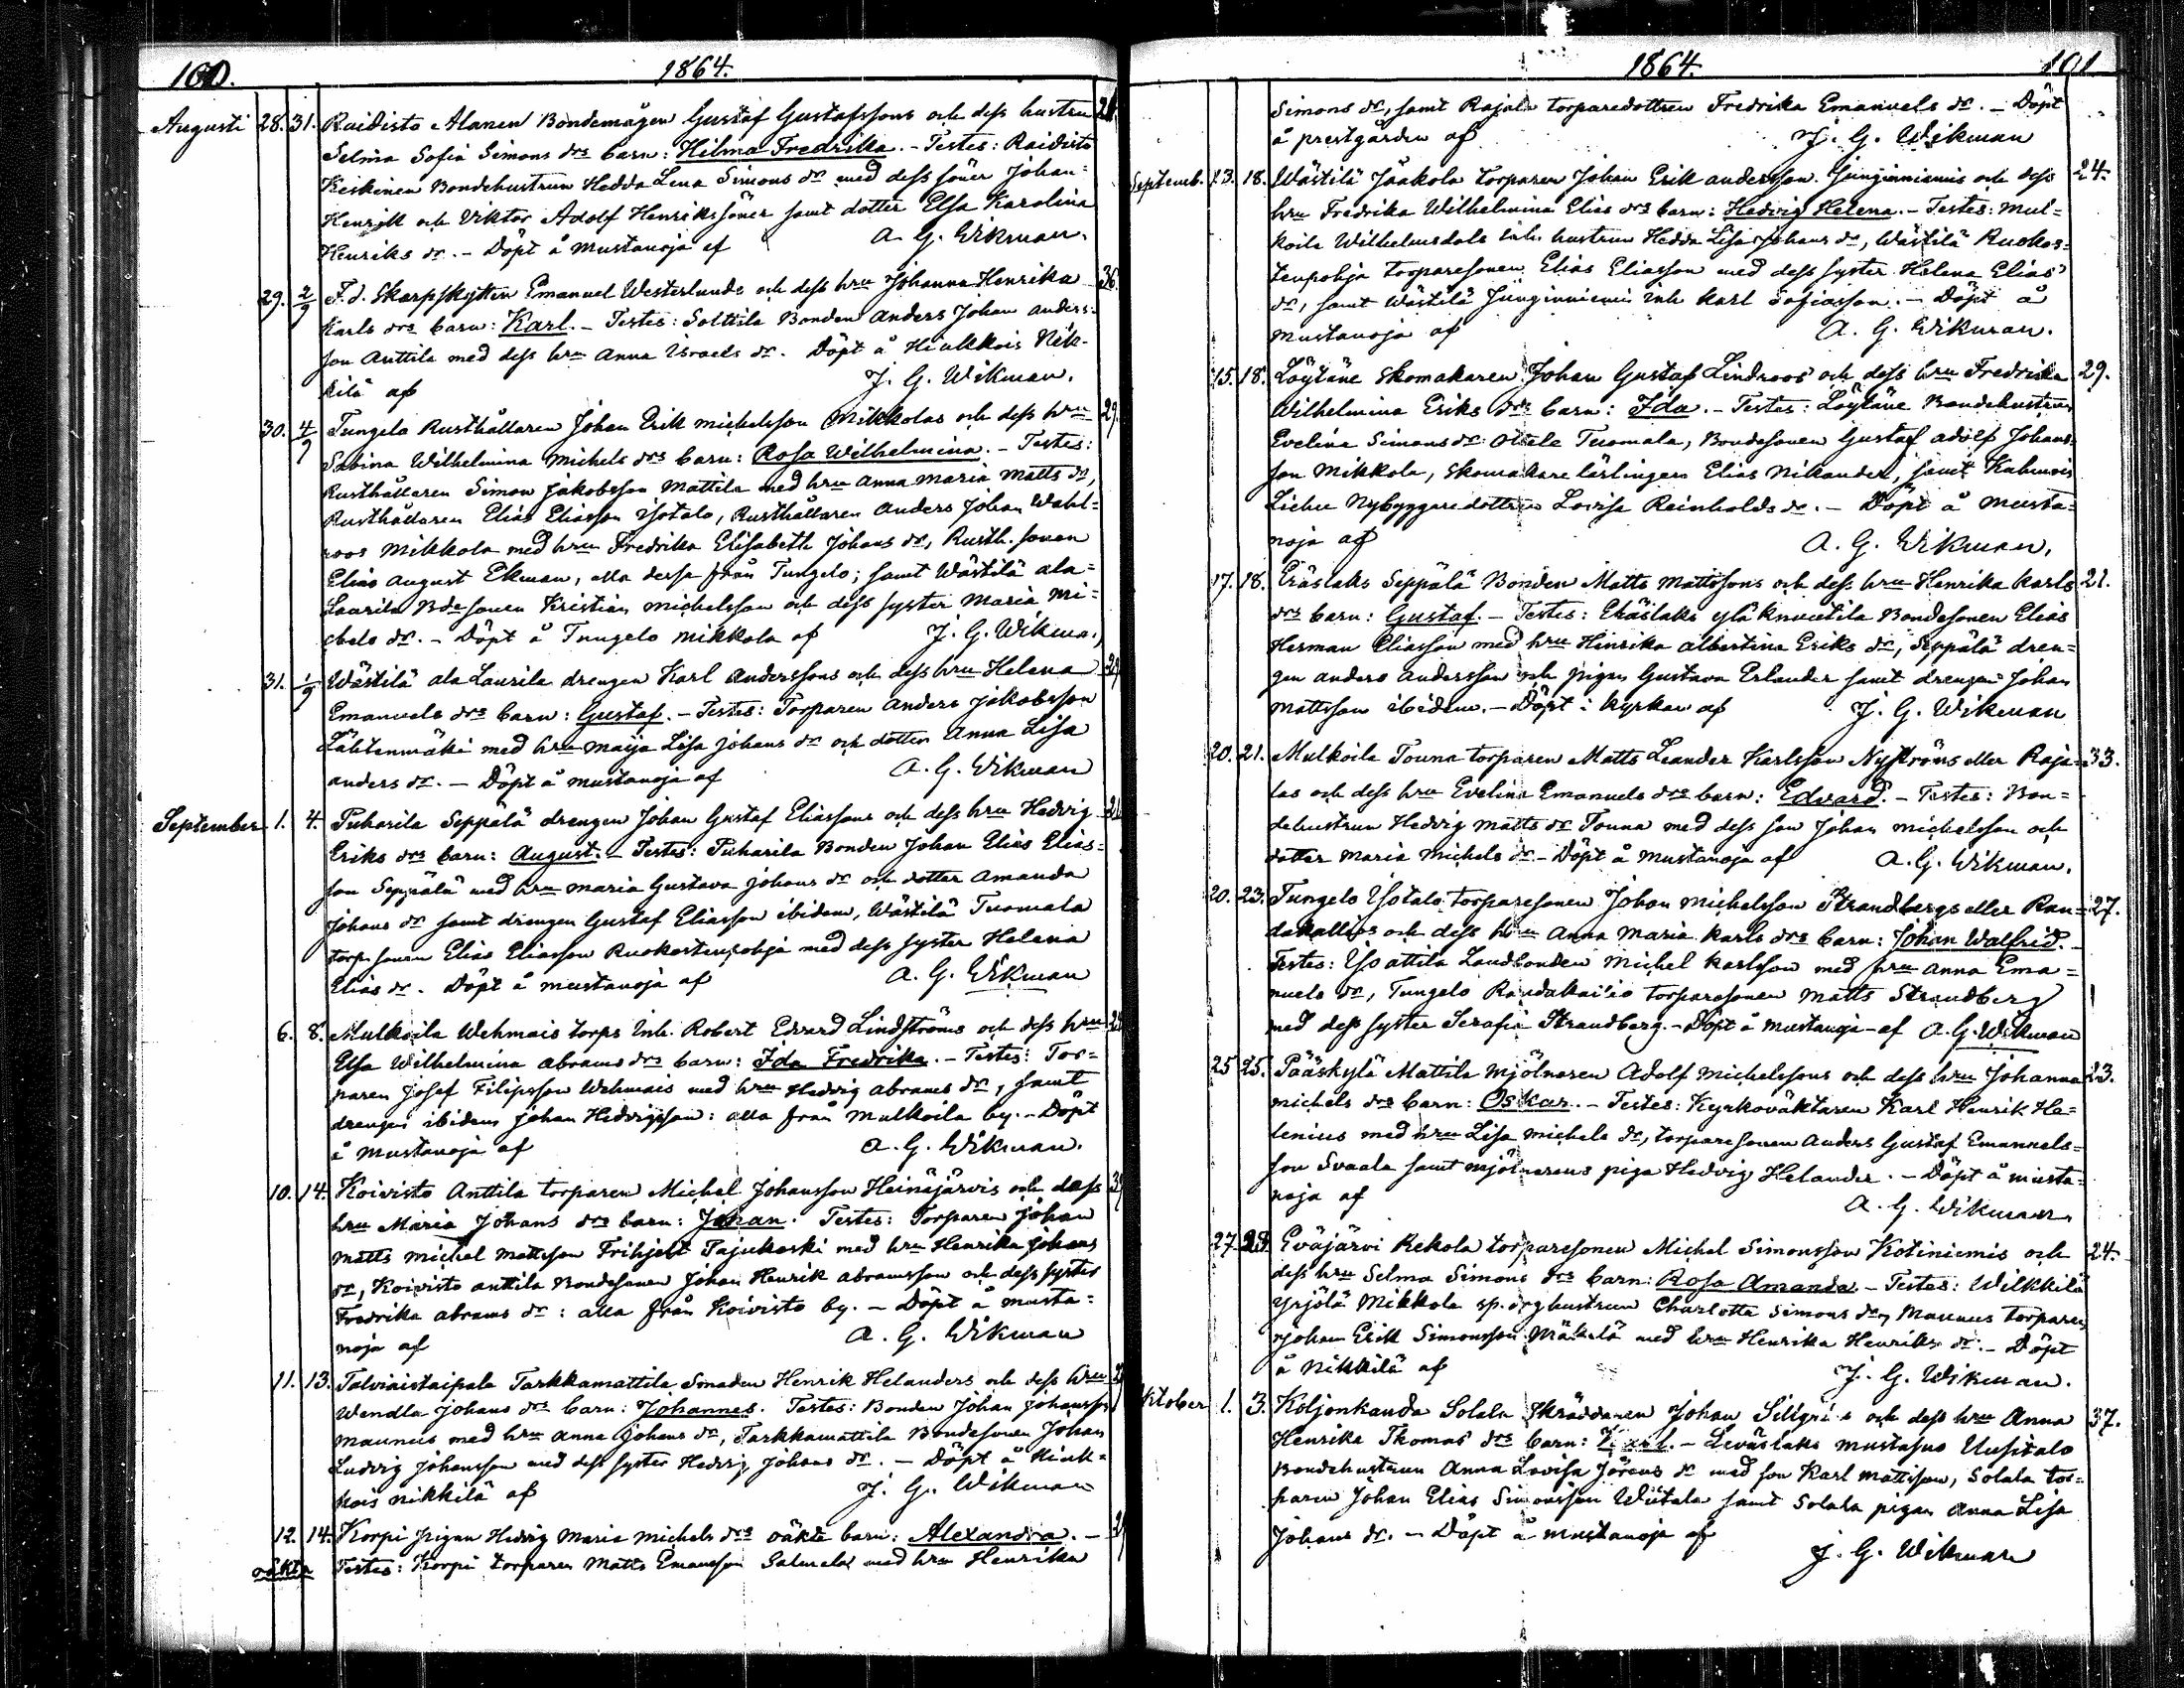 100.
1864.
Augusti 28. 31. Raidisto Alanen Bondemågen Gustaf Gustafssons och dess hustru
Selma Sofia Simons drs barn: Hilma Fredrika. - Testes: Raidisto
Keskinen Bondehustrun Hedda Lena Simons dr med dess söner Johan
Henrik och Viktor Adolf Henrikssöner samt dotter Elsa Karolina
Henriks dr. - Döpt å Mustanoja af A. G. Wikman.
29. 2/9 F. d. Skarpskytten Emanuel Westerlunds och dess hru Johanna Henrika 36.
Karls drs barn: Karl. - Testes: Solttila Bonden Anders Johan Anders-
son Anttila med dess hru Anna Israels dr. Döpt å Hiukkois Nik-
kilä af J. G. Wikman.
30. 4/9 Tungelo Rusthållaren Johan Erik Michelsson Mikkolas och dess hru 29.
Sabina Wilhelmina Michels drs barn: Rosa Wilhelmina. - Testes:
Rusthållaren Simon Jakobsson Mattila med hru Anna Maria Matts dr,
Rusthållaren Elias Eliasson Isotalo, Rusthållaren Anders Johan Wahl-
roos Mikkola med hru Fredrika Elisabeth Johans dr, Rusth. sonen
Elias August Ekman, alla dessa från Tungelo; samt Wästilä ala-
Laurila Bdesonen Kristian Michelsson och dess syster Maria Mi-
chels dr. - Döpt å Tungelo Mikkola af J. G. Wikman
31. 1/9 Wästilä ala Laurila drengen Karl Anderssons och dess hru Helena
Emanuels drs barn: Gustaf. - Testes: Torparen Anders Jakobsson
Lähtenmäki med hru Maija Lisa Johans dr och dotter Anna Lisa
Anders dr. - Döpt å Mustanoja af A. G. Wikman
September 1. 4. Puharila Seppälä drengen Johan Gustaf Eliassons och dess hru Hedvig
Eriks drs barn: August. - Testes: Puharila Bonden Johan Elias Elias-
son Seppälä med hru Maria Gustava Johans dr och dotter Amanda
Johans dr samt drengen Gustaf Eliasson ibidem, Wästilä Tuomala
torp. sonen Elias Eliasson Ruokostenpohja med dess syster Helena
Elias dr. Döpt å Mustanoja af A. G. Wikman
6. 8. Mulkoila Wehmais torps Inh. Robert Edvard Lindströms och dess hru
Elsa Wilhelmina Abrams drs barn: Ida Fredrika. - Testes: Tor-
paren Josef Filipsson Wehmais med hru Hedvig Abrams dr, samt
drengen ibidem Johan Hedrigsson: alla från Mulkoila by. - Döpt
å Mustanoja af A. G. Wikman.
10. 14. Koivisto Anttila torparen Michel Johansson Heinäjärvis och dess
hru Maria Johans drs barn: Johan. Testes: Torparen Johan
Matts Michel Mattsson Frihjelt Tajukoski med hru Henrika Johans
dr, Koivisto Anttila Bondesonen Johan Henrik Abramsson och dess syster
Fredrika Abrams dr: alla från Koivisto by. - Döpt å Musta-
noja af A. G. Wikman
11. 13. Talviaistaipale Tarkkamattila Smeden Henrik Helanders och dess hru
Wendla Johans drs barn: Johannes. Testes: Bonden Johan Johansson
Maunus med hru Anna Johans dr, Tarkkamattila Bondesonen Johan
Ludvig Johansson med dess syster Hedvig Johans dr. - Döpt å Hiuk-
kois Nikkilä af J. G. Wikman
12. 14. Korpi pigan Hedvig Maria Michels drs oäkta barn: Alexandra. -
oäkta Testes: Korpi torparen Matts Emanuelsson med hru Henrika
1864.
101
Simons dr, samt Rajala torparedottren Fredrika Emanuels dr. - Döpt
å prestgården af J. G. Wikman
Septemb. 13. 18. Wästilä Jaakola torparen Johan Erik Andersson Junginniemis och dess 24.
hru Fredrika Wilhelmina Elias drs barn: Hedvig Helena. - Testes: Mul-
koila Wilhelmsdals Inh. hustrun Hedda Lisa Johans dr, Wästilä Ruokos-
tenpohja torparesonen Elias Eliasson med dess syster Helena Elias
dr, samt Wästilä Junginniemi Inh Karl Sofiasson. - Döpt å
Mustanoja af A. G. Wikman.
15. 18. Löytäne Skomakaren Johan Gustaf Lindroos och dess hru Fredrika 29.
Wilhelmina Eriks drs barn: Ida. - Testes: Löytäne Bondehustrun
Evelina Simons dr Tuomala, Bondesonen Gustaf Adolf Johans-
son Mikkola, Skomakare lärlingen Elias Nikander, samt Kuhmois
Nybyggaredottren Lovisa Reinholds dr. - Döpt å Musta-
noja af A. G. Wikman.
17. 18. Eräslaks Seppälä Bonden Matts Mattssons och dess hru Henrika Karls 21.
drs barn: Gustaf. - Testes: Eräslaks ylä Knuutila Bondesonen Elias
Herman Eliasson med hru Hinrika Albertina Eriks dr, Seppälä dren-
gen Anders Andersson och pigan Gustava Erlander samt drengen Johan
Mattsson ibidem. - Döpt i kyrkan af J. G. Wikman
20. 21. Mulkoila Touna torparen Matts Leander Karlsson Nyströms eller Raja- 33.
las och dess hru Evelina Emanuels drs barn: Edvard. - Testes: Bon-
dehustrun Hedvig Matts dr Touna med dess son Johan Michelsson och
dotter Maria Michels dr - Döpt å Mustanoja af A. G. Wikman.
20. 23. Tungelo Isotalo torparesonen Johan Michelsson Strandbergs eller Ran- 27.
dakallios och dess hru Anna Maria Karls drs barn: Johan Walfrid. -
Testes: Iso attila Landbonden Michel Karlsson med hru Anna Ema-
nuels dr, Tungelo Randakallio torparesonen Matts Strandberg
med dess syster Serafia Strandberg. - Döpt å Mustanoja - af A. G. Wikman
25 25. Pääskylä Mattila Mjölnaren Adolf Michelssons och dess hru Johanna 23.
Michels drs barn: Oskar. - Testes: Kyrkoväktaren Karl Henrik He-
lenius med hru Lisa Michels dr, torparesonen Anders Gustaf Emanuels-
son Svaala samt mjölnarens piga Hedvig Helander. - Döpt å Musta-
noja af A. G. Wikman
27. 28. Eväjärvi Rekola torparesonen Michel Simonsson Kotiniemis och 24.
dess hru Selma Simons drs barn: Rosa Amanda. - Testes: Wilkkilä
Yrjölä Mikkola hustrun Charlotta Simons dr, Maunus torparen
Johan Erik Simonsson Mäkelä med hru Henrika Henriks dr. - Döpt
å Nikkilä af J. G. Wikman.
Oktober 1. 3. Koljonkanda Solala Skräddaren Johan och dess hru Anna 37.
Henrika Thomas drs barn: Karl. - Leväslaks Mustasuo Uusitalo
Bondehustrun Anna Lovisa Jörens dr med son Karl Mattsson, Solala tor-
paren Johan Elias Simonsson Wiitala samt Solala pigan Anna Lisa
Johans dr. - Döpt å Mustanoja af
J. G. Wikman